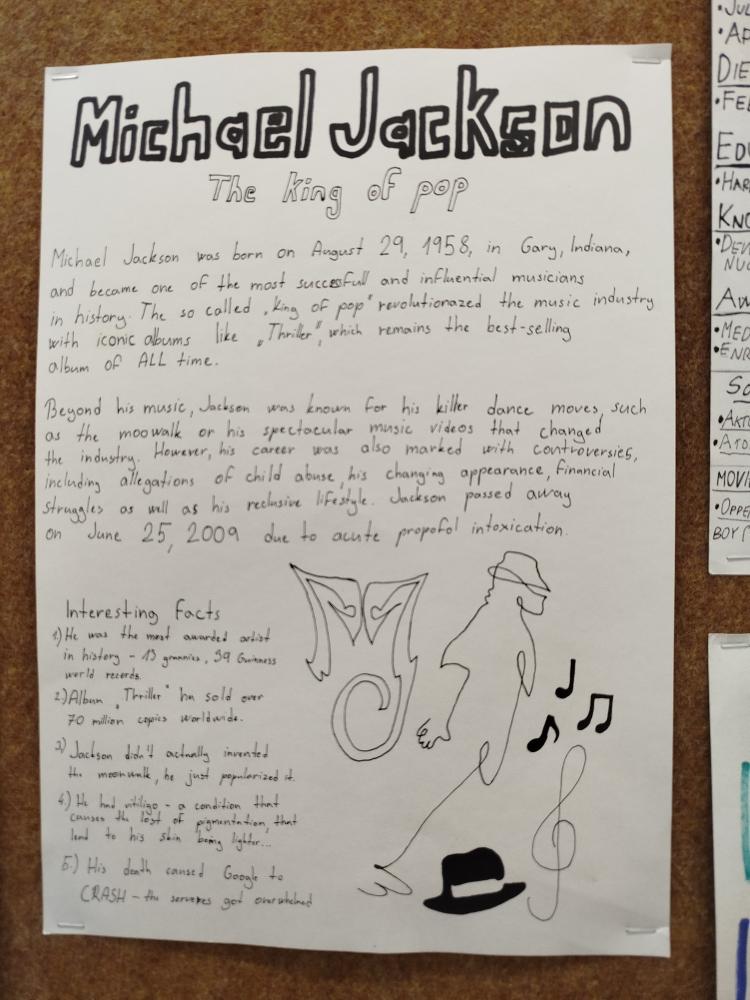 Michael Jackson
The king of pop
Michael Jackson was born on August 29, 1958, in Gary, Indiana,
and became one of the most succesfull and influential musicians
in history. The so called „king of pop" revolutionazed the music industry
with iconic albums like „Thriller", which remains the best-selling
album of ALL time.
Beyond his music, Jackson was known for his killer dance moves, such
as the moowalk or his spectacular music videos that changed
the industry. However, his career was also marked with controversies,
including allegations of child abuse, his changing appearance, financial
struggles as well as his reclusive lifestyle. Jackson passed away
on June 25, 2009 due to acute propofol intoxication.
Interesting facts
1) He was the most awarded artist
in history - 13 grammies, 39 Guinness
world records.
2.) Album „Thriller" has sold over
70 million copies worldwide.
3) Jackson didn't actually invented
the moonwalk, he just popularized it.
4.) He had vitiligo - a condition that
causes the lost of pigmentation, that
lead to his skin being lighter...
5.) His death caused Google to
CRASH - the serveres got overwhelmed
MJ
DIE
EDU
•HAR
KNO
NUC
•MED
•ENR
MOVI
•OPPE
BOY